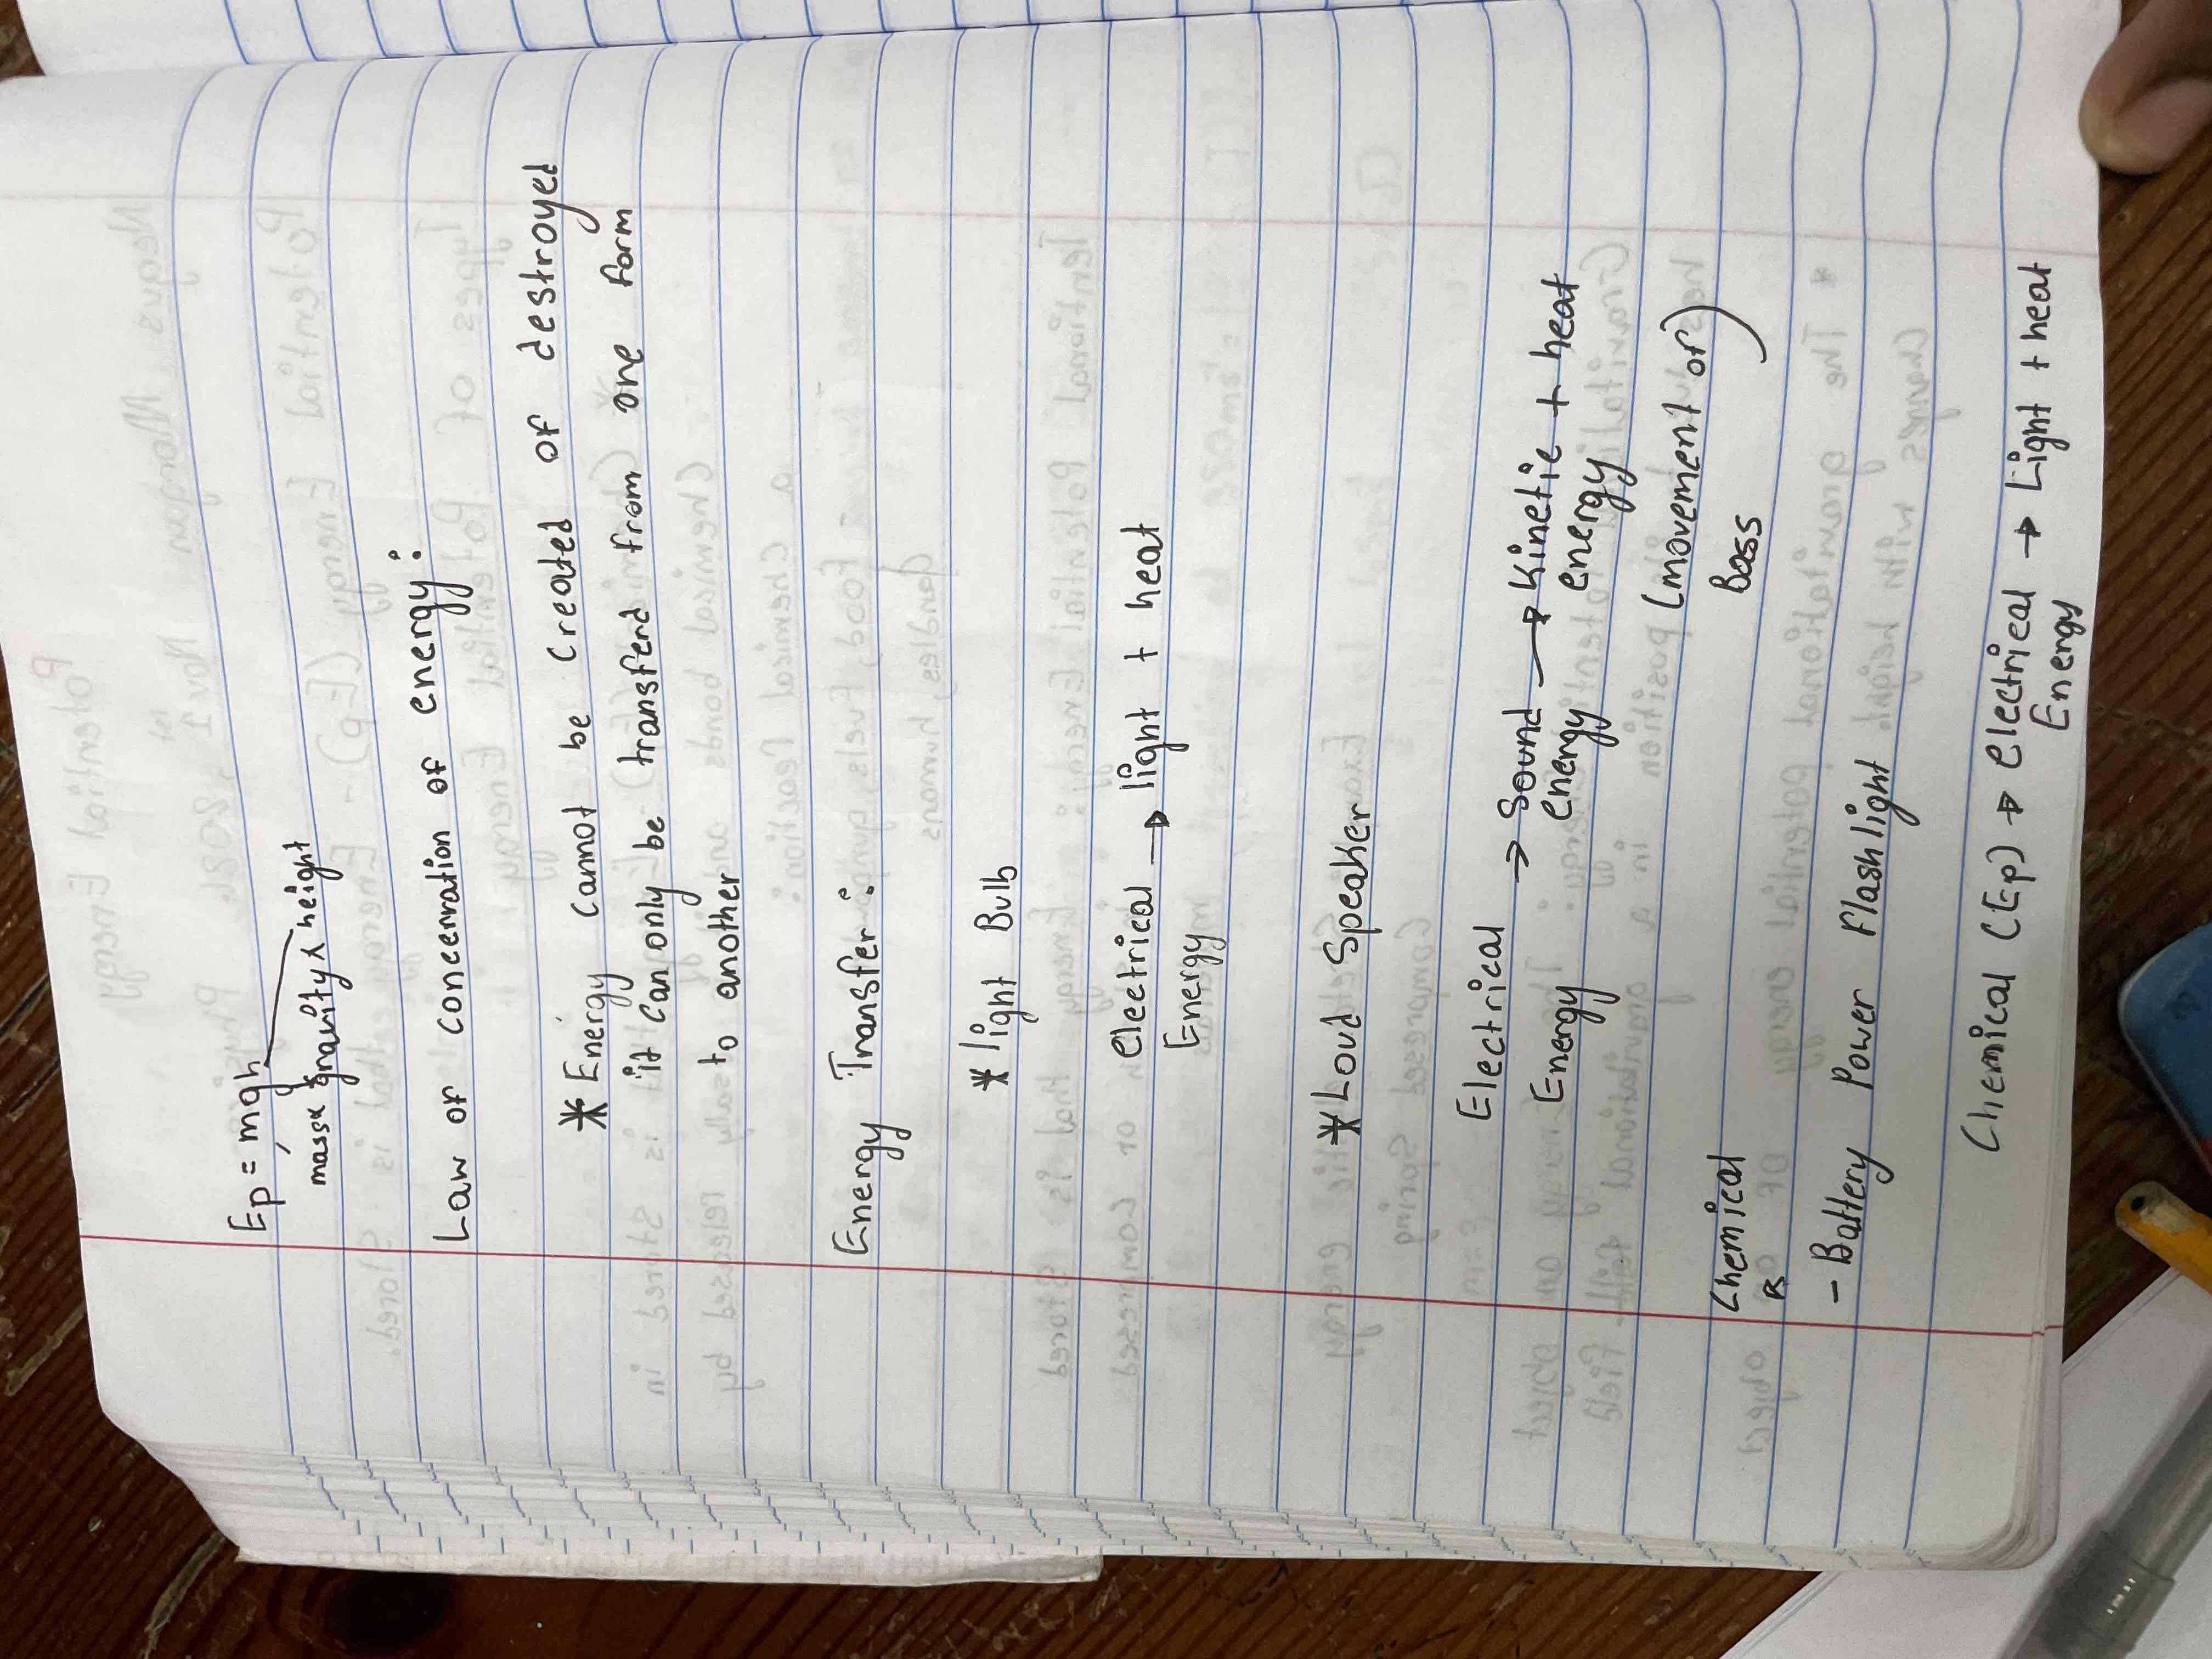 Ep = mgh
mass x gravity x height
Law of concerration of energy:
* Energy cannot be created of destroyed
it can only be transferd from one form
to another
Energy Transfer:
* light Bulb
electrical → light + heat
Energy
* Loud Speaker
Electrical → Sound → Kinetic + heat
Energy energy energy
(movement or)
Bass
Chemical
- Battery Power flashlight
Chemical (Ep) → electrical → Light + heat
Energy